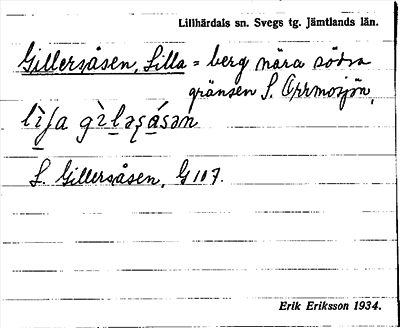 Lillhärdals sn. Svegs tg. Jämtlands län.
Gillersåsen, Lilla = berg nära södra
gränsen S. Orrmosjön,
lìʃa gìləʂásən
L. Gillersåsen, G 107.
Erik Eriksson 1934.